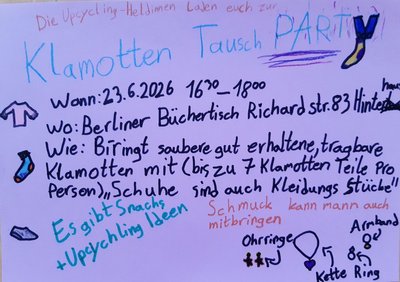 Die Upcycling-Heldinnen Laden euch zur
Klamotten Tausch PARTY
Wann: 23.6.2026 16³⁰–18⁰⁰
Wo: Berliner Büchertisch Richardstr. 83 Hinterhaus
Wie: Biringt saubere gut erhaltene, tragbare
Klamotten mit (bis zu 7 Klamotten Teile Pro
Person) „Schuhe sind auch Kleidungs Stücke"
Es gibt Snachs
+ Upcychling Ideen
Schmuck kann mann auch
mitbringen
Ohrringe
Armband
Kette Ring